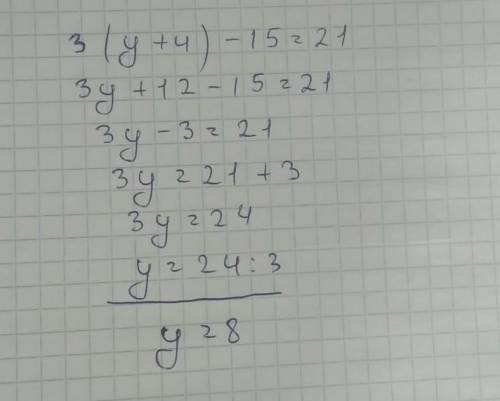 3 (y + 4) - 15 = 21
3y + 12 - 15 = 21
3y - 3 = 21
3y = 21 + 3
3y = 24
y = 24 : 3
y = 8